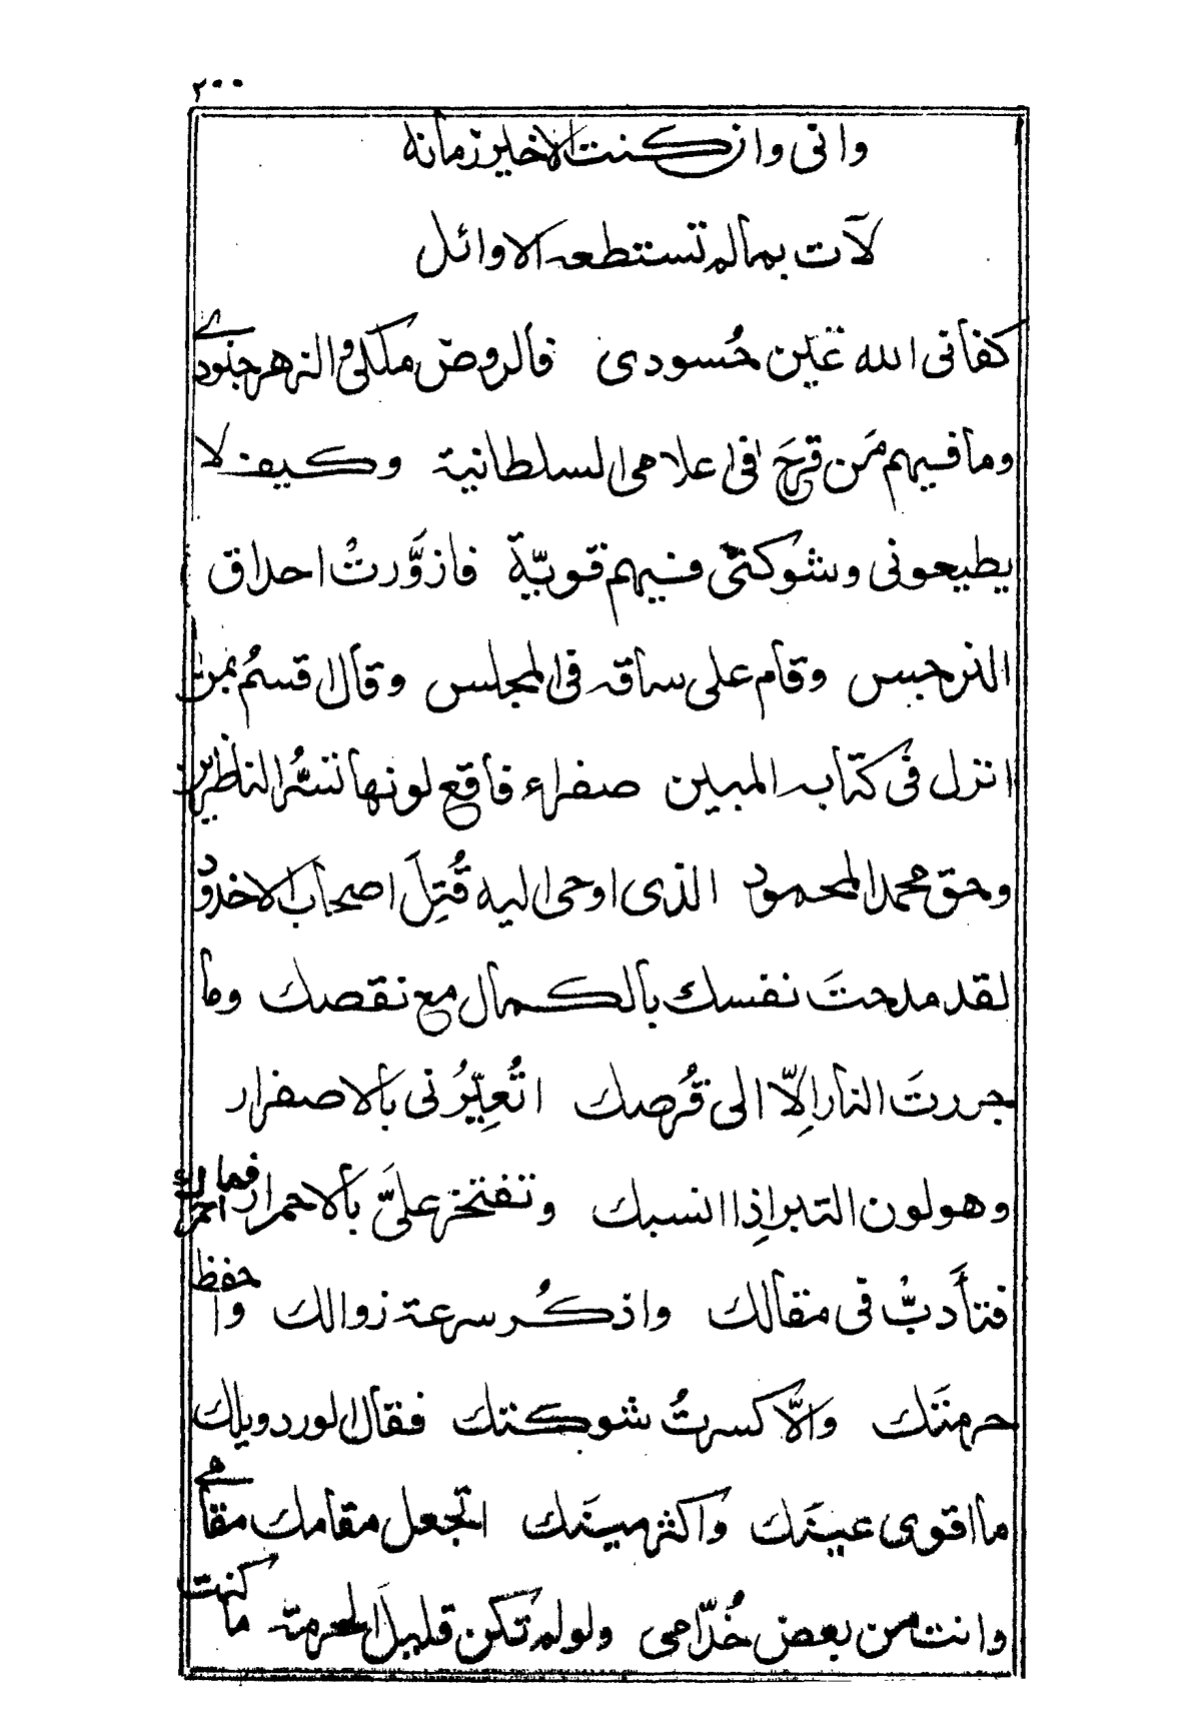 ٢٠٠
واني وان كنت الاخير زمانه
لآت بما لم تستطعه الاوائل
كفاني الله عَيْن حُسودى فالروض ملكى والزهر جنودے
وما فيهم مَن قرحَ فى اعلامى السلطانية وكيف لا
يطيعونى وشوكتى فيهم قويّة فازوَّرتْ احداق
النرجس وقام على ساقه فى المجلس وقال اقسمُ بمن
انزل فى كتابه المبين صفراء فاقع لونها تسُّر الناظرين
وحق محمد المحمود الذى اوحى اليه قُتِلَ اصحاب الاخدود
لقد مدحتَ نفسك بالكمال مع نقصك وما
جررتَ النار اِلّا الى قُرصك اتُعيِّرُنى بالاصفرار
وهو لون التبر اِذا انسبك وتفتخر علىَّ بالاحمرار فما احمرارك
فتأَدبْ فى مقالك واذكُر سرعة زوالك واحفظ
حرمتَك والّا كسرتُ شوكتك فقال الورد ويلك
ما اقوى عينَك واكثر مينَك اتجعل مقامك مقامے
وانت من بعض خُدّامى ولو لم تكن قليلَ الحرمة ما كنت